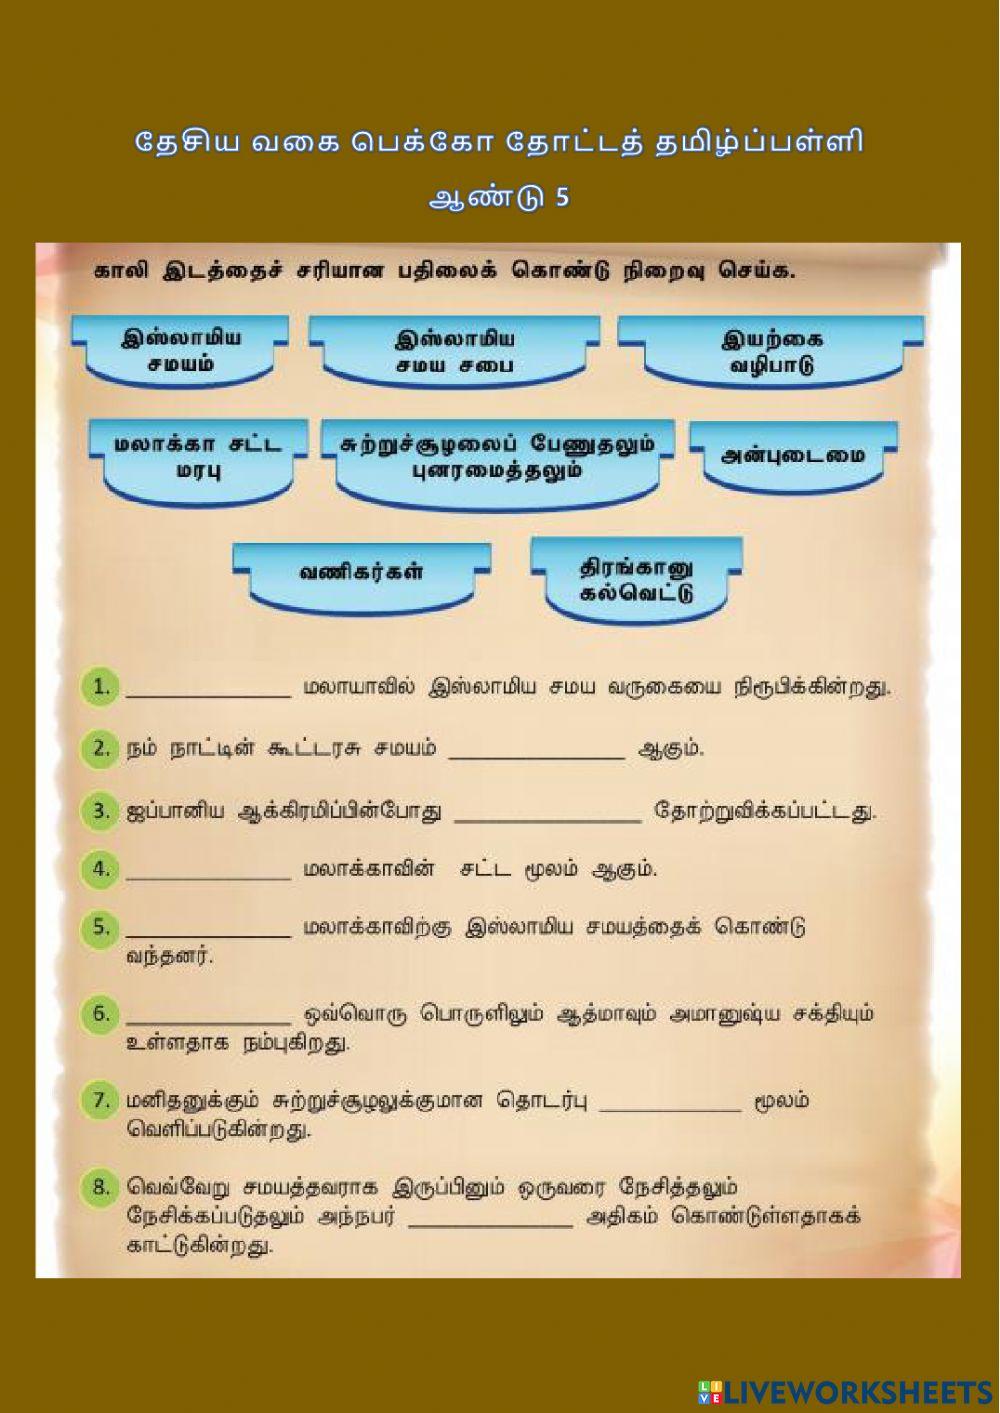 தேசிய வகை பெக்கோ தோட்டத் தமிழ்ப்பள்ளி
ஆண்டு 5
காலி இடத்தைச் சரியான பதிலைக் கொண்டு நிறைவு செய்க.
இஸ்லாமிய
சமயம்
இஸ்லாமிய
சமய சபை
இயற்கை
வழிபாடு
மலாக்கா சட்ட
மரபு
சுற்றுச்சூழலைப் பேணுதலும்
புனரமைத்தலும்
அன்புடைமை
வணிகர்கள்
திரங்கானு
கல்வெட்டு
1. ______________ மலாயாவில் இஸ்லாமிய சமய வருகையை நிரூபிக்கின்றது.
2. நம் நாட்டின் கூட்டரசு சமயம் _______________ ஆகும்.
3. ஜப்பானிய ஆக்கிரமிப்பின்போது ________________ தோற்றுவிக்கப்பட்டது.
4. ______________ மலாக்காவின் சட்ட மூலம் ஆகும்.
5. ______________ மலாக்காவிற்கு இஸ்லாமிய சமயத்தைக் கொண்டு
வந்தனர்.
6. ______________ ஒவ்வொரு பொருளிலும் ஆத்மாவும் அமானுஷ்ய சக்தியும்
உள்ளதாக நம்புகிறது.
7. மனிதனுக்கும் சுற்றுச்சூழலுக்குமான தொடர்பு ____________ மூலம்
வெளிப்படுகின்றது.
8. வெவ்வேறு சமயத்தவராக இருப்பினும் ஒருவரை நேசித்தலும்
நேசிக்கப்படுதலும் அந்நபர் ______________ அதிகம் கொண்டுள்ளதாகக்
காட்டுகின்றது.
LIVE LIVEWORKSHEETS